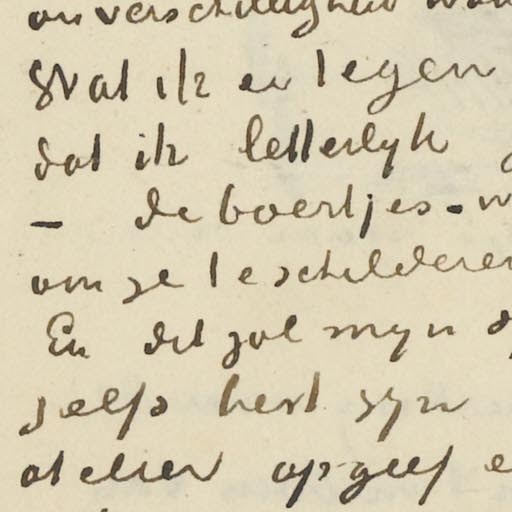 onverschilligheid
Wat ik er tegen
dat ik letterlyk
— de boertjes - w
om ze te schilderen
En dit zal myn
zelfs best zyn
atelier opgeef e